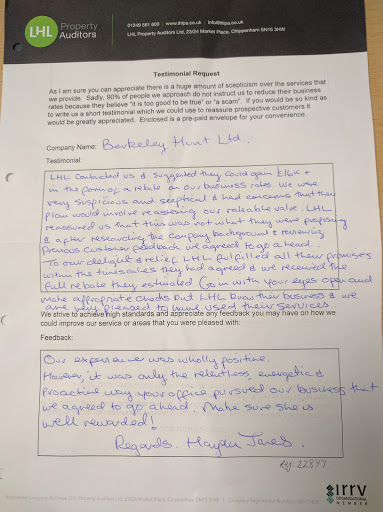 LHL Property Auditors
01249 561 600 | info@lhlpa.co.uk | www.lhlpa.co.uk
LHL Property Auditors Ltd, 23/24 Market Place, Chippenham SN15 3HW
Testimonial Request
As I am sure you can appreciate there is a huge amount of scepticism over the services that
we provide. Sadly, 90% of people we approach do not instruct us to reduce their business
rates because they believe "it is too good to be true" or "a scam". If you would be so kind as
to write us a short testimonial which we could use to reassure prospective customers it
would be greatly appreciated. Enclosed is a pre-paid envelope for your convenience.
Company Name: Berkeley Hunt Ltd.
Testimonial:
LHL Contacted us & suggested they could gain £16K+
in the form of a rebate on our business rates. We were
very suspicious and sceptical & had concerns that their
plan would involve reassessing our rateable value. LHL
reassured us that this was not what they were proposing
& after researching the company background & reviewing
previous customer feedback we agreed to go ahead.
To our delight & relief LHL fulfilled all their promises
within the timescales they had agreed & we received the
full rebate they estimated. Go in with your eyes open and
make appropriate checks but LHL know their business & we
are very pleased to have used their services
We strive to achieve high standards and appreciate any feedback you may have on how we
could improve our service or areas that you were pleased with:
Feedback:
Our experience was wholly positive.
However, it was only the relentless, energetic &
proactive way your office pursued our business that
we agreed to go ahead. Make sure she is
well rewarded!
Regards. Hayden Jones.
22897
irrv
ORGANISATIONAL
MEMBER